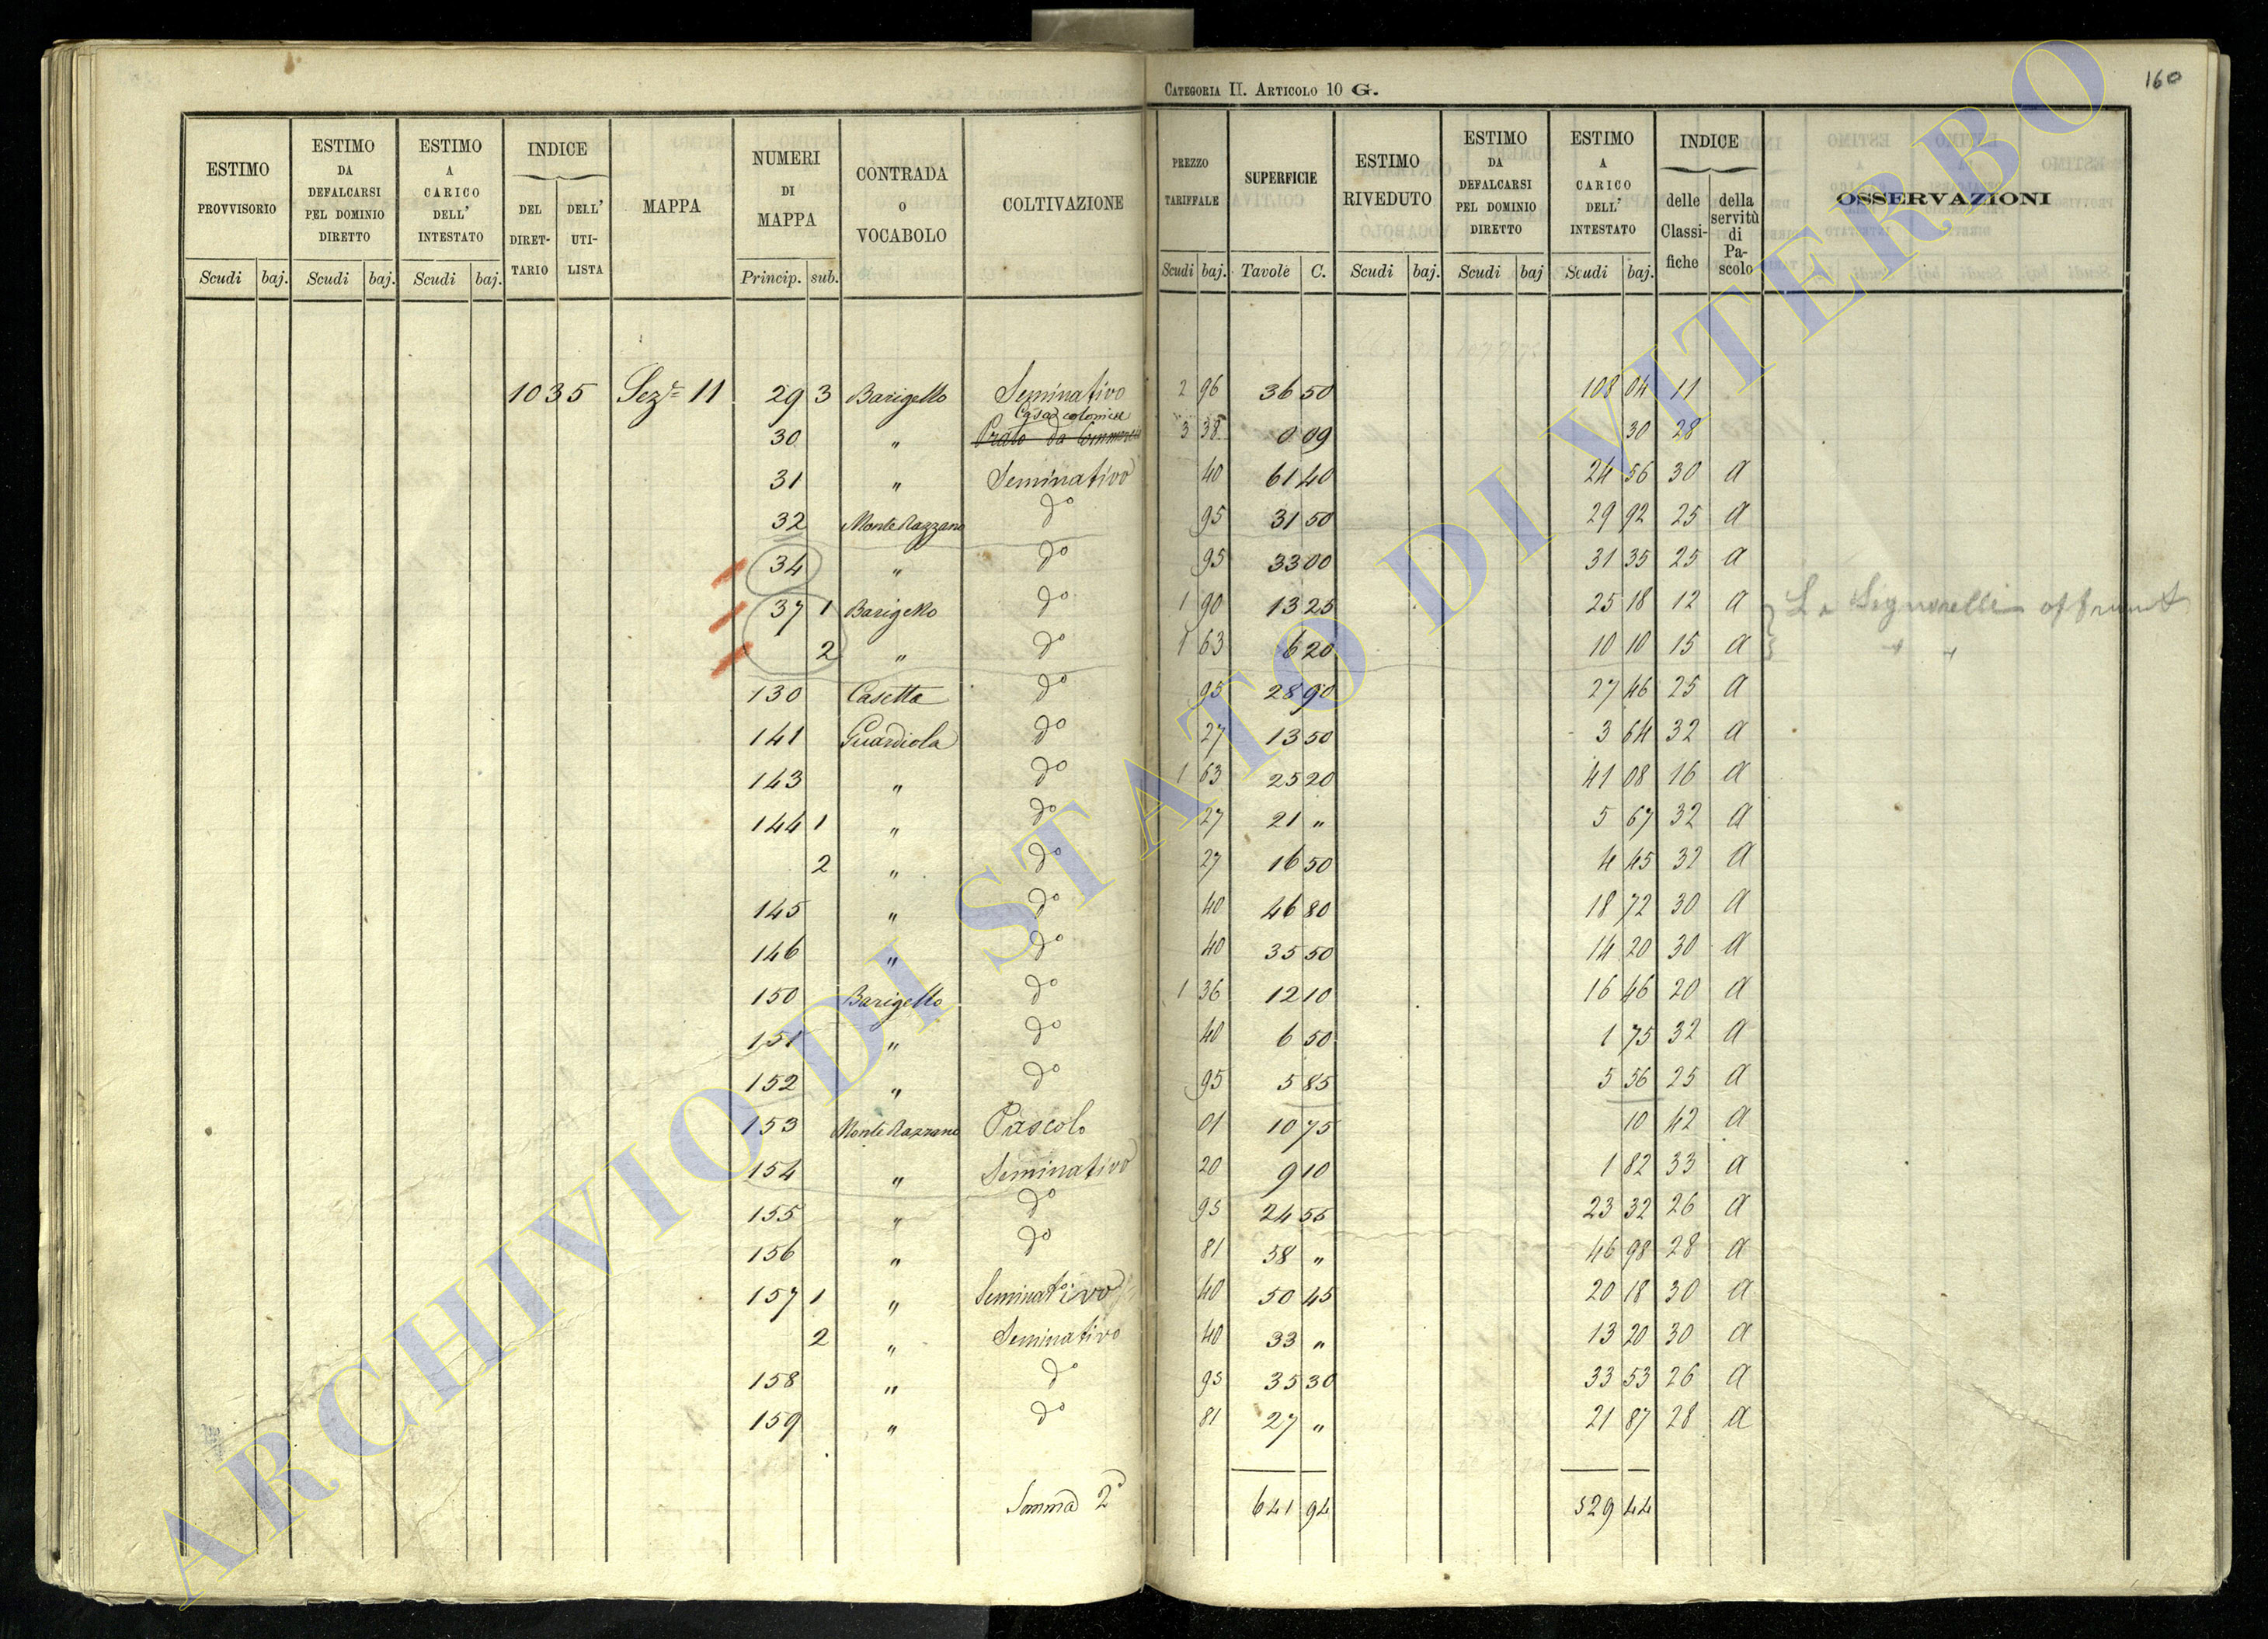 160
CATEGORIA II. ARTICOLO 10 G.
ESTIMO PROVVISORIO
ESTIMO DA DEFALCARSI PEL DOMINIO DIRETTO
ESTIMO A CARICO DELL' INTESTATO
INDICE
DEL DIRET-TARIO
DELL' UTI-LISTA
MAPPA
NUMERI DI MAPPA
CONTRADA O VOCABOLO
COLTIVAZIONE
PREZZO TARIFFALE
SUPERFICIE
ESTIMO RIVEDUTO
ESTIMO DA DEFALCARSI PEL DOMINIO DIRETTO
ESTIMO A CARICO DELL' INTESTATO
INDICE
delle Classi-fiche
della servitù di Pa-scolo
OSSERVAZIONI
Scudi baj. Scudi baj. Scudi baj. Princip. sub. Scudi baj. Tavole C. Scudi baj. Scudi baj Scudi baj.
1035 Sez.e 11 29 3 Barigello Seminativo 2 96 36 50 108 04 11
Casa colonica
30 " Prato da 3 38 0 09 30 28
31 " Seminativo 40 61 40 24 56 30 a
32 Monte Razzano do 95 31 50 29 92 25 a
34 " do 95 33 00 31 35 25 a
37 1 Barigello do 1 90 13 25 25 18 12 a
2 " do 1 63 6 20 10 10 15 a
130 Casetta do 95 28 90 27 46 25 a
141 Guardiola do 27 13 50 3 64 32 a
143 " do 1 63 25 20 41 08 16 a
144 1 " do 27 21 " 5 67 32 a
2 " do 27 16 50 4 45 32 a
145 " do 40 46 80 18 72 30 a
146 " do 40 35 50 14 20 30 a
150 Barigello do 1 36 12 10 16 46 20 a
151 " do 40 6 50 1 75 32 a
152 " do 95 5 85 5 56 25 a
153 Monte Razzano Pascolo 01 10 75 10 42 a
154 " Seminativo 20 9 10 1 82 33 a
155 " do 95 24 55 23 32 26 a
156 " do 81 58 " 46 98 28 a
157 1 " Seminativo 40 50 45 20 18 30 a
2 " Seminativo 40 33 " 13 20 30 a
158 " do 95 35 30 33 53 26 a
159 " do 81 27 " 21 87 28 a
Somma 2a 641 94 529 44
ARCHIVIO DI STATO DI VITERBO